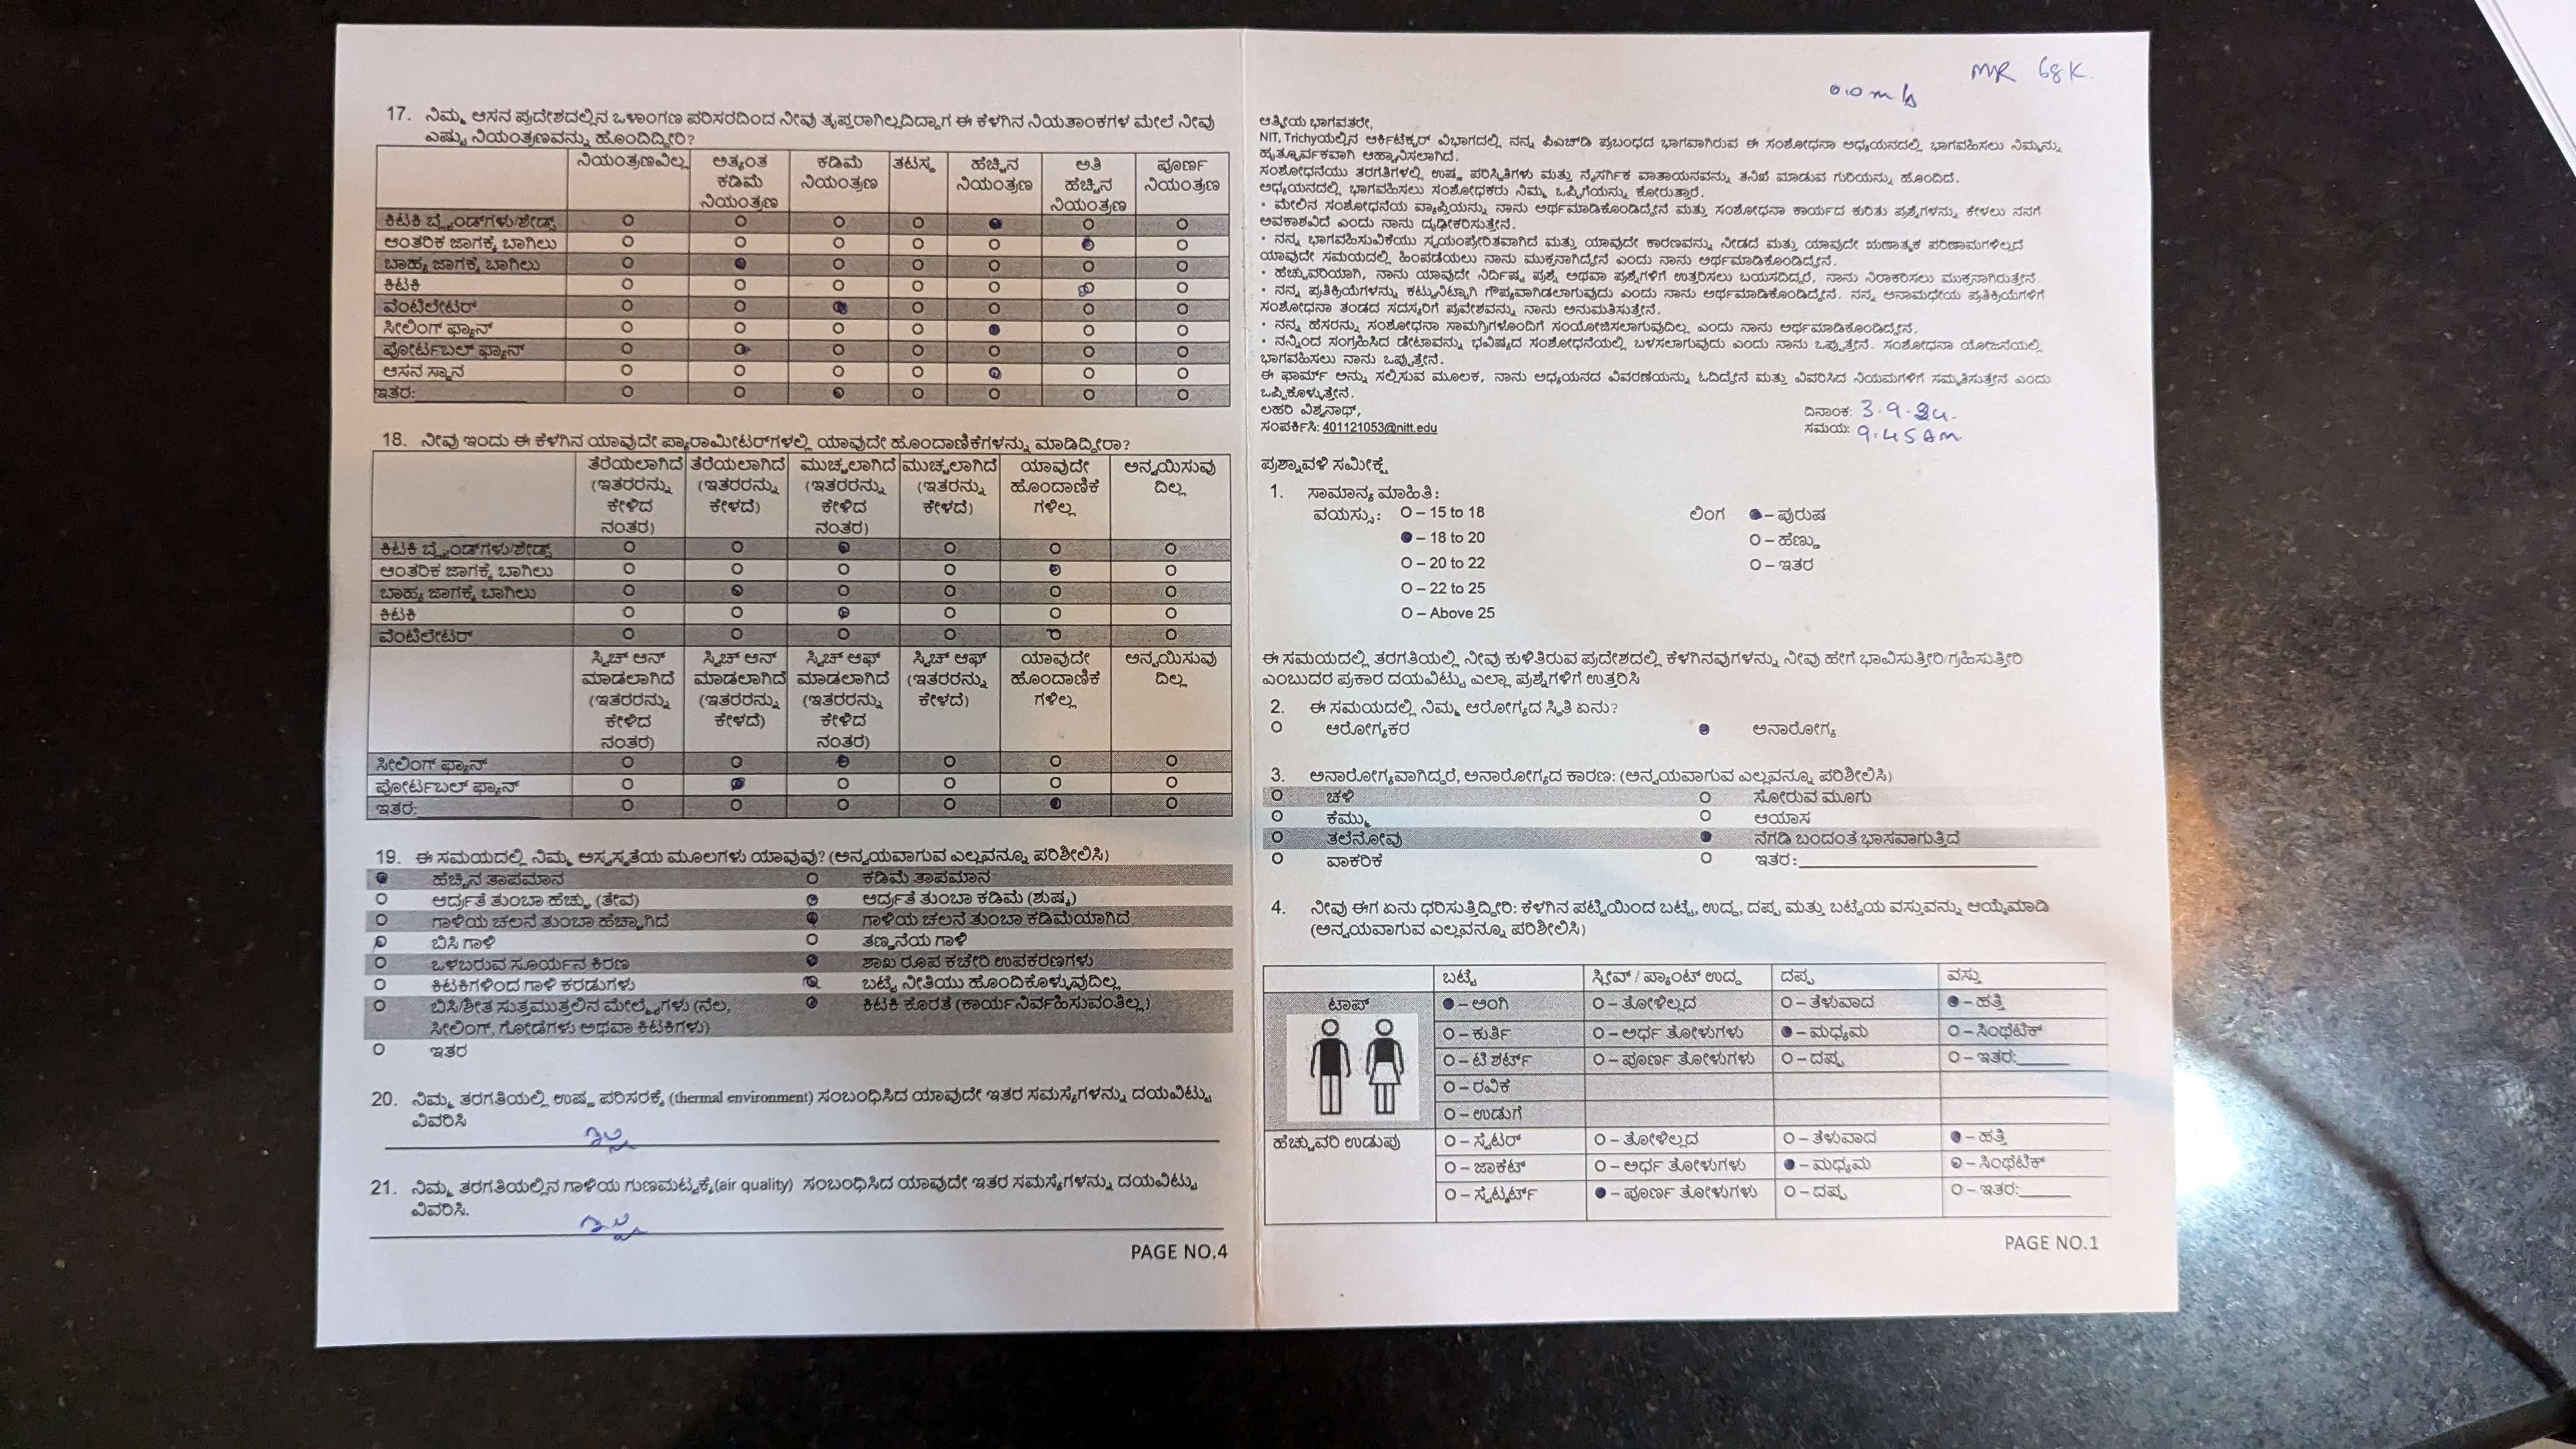 17. ನಿಮ್ಮ ಆಸನ ಪ್ರದೇಶದಲ್ಲಿನ ಒಳಾಂಗಣ ಪರಿಸರದಿಂದ ನೀವು ತೃಪ್ತರಾಗಿಲ್ಲದಿದ್ದಾಗ ಈ ಕೆಳಗಿನ ನಿಯತಾಂಕಗಳ ಮೇಲೆ ನೀವು
ಎಷ್ಟು ನಿಯಂತ್ರಣವನ್ನು ಹೊಂದಿದ್ದೀರಿ?
ನಿಯಂತ್ರಣವಿಲ್ಲ ಅತ್ಯಂತ ಕಡಿಮೆ ನಿಯಂತ್ರಣ ಕಡಿಮೆ ನಿಯಂತ್ರಣ ತಟಸ್ಥ ಹೆಚ್ಚಿನ ನಿಯಂತ್ರಣ ಅತಿ ಹೆಚ್ಚಿನ ನಿಯಂತ್ರಣ ಪೂರ್ಣ ನಿಯಂತ್ರಣ
ಕಿಟಕಿ ಬ್ಲೈಂಡ್‌ಗಳು/ಶೇಡ್ಸ್
ಆಂತರಿಕ ಜಾಗಕ್ಕೆ ಬಾಗಿಲು
ಬಾಹ್ಯ ಜಾಗಕ್ಕೆ ಬಾಗಿಲು
ಕಿಟಕಿ
ವೆಂಟಿಲೇಟರ್
ಸೀಲಿಂಗ್ ಫ್ಯಾನ್
ಪೋರ್ಟಬಲ್ ಫ್ಯಾನ್
ಆಸನ ಸ್ಥಾನ
ಇತರ:
18. ನೀವು ಇಂದು ಈ ಕೆಳಗಿನ ಯಾವುದೇ ಪ್ಯಾರಾಮೀಟರ್‌ಗಳಲ್ಲಿ ಯಾವುದೇ ಹೊಂದಾಣಿಕೆಗಳನ್ನು ಮಾಡಿದ್ದೀರಾ?
ತೆರೆಯಲಾಗಿದೆ (ಇತರರನ್ನು ಕೇಳಿದ ನಂತರ) ತೆರೆಯಲಾಗಿದೆ (ಇತರರನ್ನು ಕೇಳದೆ) ಮುಚ್ಚಲಾಗಿದೆ (ಇತರರನ್ನು ಕೇಳಿದ ನಂತರ) ಮುಚ್ಚಲಾಗಿದೆ (ಇತರನ್ನು ಕೇಳದೆ) ಯಾವುದೇ ಹೊಂದಾಣಿಕೆ ಗಳಿಲ್ಲ ಅನ್ವಯಿಸುವು ದಿಲ್ಲ
ಕಿಟಕಿ ಬ್ಲೈಂಡ್‌ಗಳು/ಶೇಡ್ಸ್
ಆಂತರಿಕ ಜಾಗಕ್ಕೆ ಬಾಗಿಲು
ಬಾಹ್ಯ ಜಾಗಕ್ಕೆ ಬಾಗಿಲು
ಕಿಟಕಿ
ವೆಂಟಿಲೇಟರ್
ಸ್ವಿಚ್ ಆನ್ ಮಾಡಲಾಗಿದೆ (ಇತರರನ್ನು ಕೇಳಿದ ನಂತರ) ಸ್ವಿಚ್ ಆನ್ ಮಾಡಲಾಗಿದೆ (ಇತರರನ್ನು ಕೇಳದೆ) ಸ್ವಿಚ್ ಆಫ್ ಮಾಡಲಾಗಿದೆ (ಇತರರನ್ನು ಕೇಳಿದ ನಂತರ) ಸ್ವಿಚ್ ಆಫ್ (ಇತರರನ್ನು ಕೇಳದೆ) ಯಾವುದೇ ಹೊಂದಾಣಿಕೆ ಗಳಿಲ್ಲ ಅನ್ವಯಿಸುವು ದಿಲ್ಲ
ಸೀಲಿಂಗ್ ಫ್ಯಾನ್
ಪೋರ್ಟಬಲ್ ಫ್ಯಾನ್
ಇತರ:
19. ಈ ಸಮಯದಲ್ಲಿ ನಿಮ್ಮ ಅಸ್ವಸ್ಥತೆಯ ಮೂಲಗಳು ಯಾವುವು? (ಅನ್ವಯವಾಗುವ ಎಲ್ಲವನ್ನೂ ಪರಿಶೀಲಿಸಿ)
ಹೆಚ್ಚಿನ ತಾಪಮಾನ ಕಡಿಮೆ ತಾಪಮಾನ
ಆರ್ದ್ರತೆ ತುಂಬಾ ಹೆಚ್ಚು (ತೇವ) ಆರ್ದ್ರತೆ ತುಂಬಾ ಕಡಿಮೆ (ಶುಷ್ಕ)
ಗಾಳಿಯ ಚಲನೆ ತುಂಬಾ ಹೆಚ್ಚಾಗಿದೆ ಗಾಳಿಯ ಚಲನೆ ತುಂಬಾ ಕಡಿಮೆಯಾಗಿದೆ
ಬಿಸಿ ಗಾಳಿ ತಣ್ಣನೆಯ ಗಾಳಿ
ಒಳಬರುವ ಸೂರ್ಯನ ಕಿರಣ ಶಾಖ ರೂಪ ಕಚೇರಿ ಉಪಕರಣಗಳು
ಕಿಟಕಿಗಳಿಂದ ಗಾಳಿ ಕರಡುಗಳು ಬಟ್ಟೆ ನೀತಿಯು ಹೊಂದಿಕೊಳ್ಳುವುದಿಲ್ಲ
ಬಿಸಿ/ಶೀತ ಸುತ್ತಮುತ್ತಲಿನ ಮೇಲ್ಮೈಗಳು (ನೆಲ, ಕಿಟಕಿ ಕೊರತೆ (ಕಾರ್ಯನಿರ್ವಹಿಸುವಂತಿಲ್ಲ)
ಸೀಲಿಂಗ್, ಗೋಡೆಗಳು ಅಥವಾ ಕಿಟಕಿಗಳು)
ಇತರ
20. ನಿಮ್ಮ ತರಗತಿಯಲ್ಲಿ ಉಷ್ಣ ಪರಿಸರಕ್ಕೆ (thermal environment) ಸಂಬಂಧಿಸಿದ ಯಾವುದೇ ಇತರ ಸಮಸ್ಯೆಗಳನ್ನು ದಯವಿಟ್ಟು
ವಿವರಿಸಿ
ಇಲ್ಲ
21. ನಿಮ್ಮ ತರಗತಿಯಲ್ಲಿನ ಗಾಳಿಯ ಗುಣಮಟ್ಟಕ್ಕೆ(air quality) ಸಂಬಂಧಿಸಿದ ಯಾವುದೇ ಇತರ ಸಮಸ್ಯೆಗಳನ್ನು ದಯವಿಟ್ಟು
ವಿವರಿಸಿ.
ಇಲ್ಲ
PAGE NO.4
MR 68K.
0.0 m/s
ಆತ್ಮೀಯ ಭಾಗವತರೇ,
NIT, Trichyಯಲ್ಲಿನ ಆರ್ಕಿಟೆಕ್ಚರ್ ವಿಭಾಗದಲ್ಲಿ ನನ್ನ ಪಿಎಚ್‌ಡಿ ಪ್ರಬಂಧದ ಭಾಗವಾಗಿರುವ ಈ ಸಂಶೋಧನಾ ಅಧ್ಯಯನದಲ್ಲಿ ಭಾಗವಹಿಸಲು ನಿಮ್ಮನ್ನು
ಹೃತ್ಪೂರ್ವಕವಾಗಿ ಆಹ್ವಾನಿಸಲಾಗಿದೆ.
ಸಂಶೋಧನೆಯು ತರಗತಿಗಳಲ್ಲಿ ಉಷ್ಣ ಪರಿಸ್ಥಿತಿಗಳು ಮತ್ತು ನೈಸರ್ಗಿಕ ವಾತಾಯನವನ್ನು ತನಿಖೆ ಮಾಡುವ ಗುರಿಯನ್ನು ಹೊಂದಿದೆ.
ಅಧ್ಯಯನದಲ್ಲಿ ಭಾಗವಹಿಸಲು ಸಂಶೋಧಕರು ನಿಮ್ಮ ಒಪ್ಪಿಗೆಯನ್ನು ಕೋರುತ್ತಾರೆ.
• ಮೇಲಿನ ಸಂಶೋಧನೆಯ ವ್ಯಾಪ್ತಿಯನ್ನು ನಾನು ಅರ್ಥಮಾಡಿಕೊಂಡಿದ್ದೇನೆ ಮತ್ತು ಸಂಶೋಧನಾ ಕಾರ್ಯದ ಕುರಿತು ಪ್ರಶ್ನೆಗಳನ್ನು ಕೇಳಲು ನನಗೆ
ಅವಕಾಶವಿದೆ ಎಂದು ನಾನು ದೃಢೀಕರಿಸುತ್ತೇನೆ.
• ನನ್ನ ಭಾಗವಹಿಸುವಿಕೆಯು ಸ್ವಯಂಪ್ರೇರಿತವಾಗಿದೆ ಮತ್ತು ಯಾವುದೇ ಕಾರಣವನ್ನು ನೀಡದೆ ಮತ್ತು ಯಾವುದೇ ಋಣಾತ್ಮಕ ಪರಿಣಾಮಗಳಿಲ್ಲದೆ
ಯಾವುದೇ ಸಮಯದಲ್ಲಿ ಹಿಂಪಡೆಯಲು ನಾನು ಮುಕ್ತನಾಗಿದ್ದೇನೆ ಎಂದು ನಾನು ಅರ್ಥಮಾಡಿಕೊಂಡಿದ್ದೇನೆ.
• ಹೆಚ್ಚುವರಿಯಾಗಿ, ನಾನು ಯಾವುದೇ ನಿರ್ದಿಷ್ಟ ಪ್ರಶ್ನೆ ಅಥವಾ ಪ್ರಶ್ನೆಗಳಿಗೆ ಉತ್ತರಿಸಲು ಬಯಸದಿದ್ದರೆ, ನಾನು ನಿರಾಕರಿಸಲು ಮುಕ್ತನಾಗಿರುತ್ತೇನೆ.
• ನನ್ನ ಪ್ರತಿಕ್ರಿಯೆಗಳನ್ನು ಕಟ್ಟುನಿಟ್ಟಾಗಿ ಗೌಪ್ಯವಾಗಿಡಲಾಗುವುದು ಎಂದು ನಾನು ಅರ್ಥಮಾಡಿಕೊಂಡಿದ್ದೇನೆ. ನನ್ನ ಅನಾಮಧೇಯ ಪ್ರತಿಕ್ರಿಯೆಗಳಿಗೆ
ಸಂಶೋಧನಾ ತಂಡದ ಸದಸ್ಯರಿಗೆ ಪ್ರವೇಶವನ್ನು ನಾನು ಅನುಮತಿಸುತ್ತೇನೆ.
• ನನ್ನ ಹೆಸರನ್ನು ಸಂಶೋಧನಾ ಸಾಮಗ್ರಿಗಳೊಂದಿಗೆ ಸಂಯೋಜಿಸಲಾಗುವುದಿಲ್ಲ ಎಂದು ನಾನು ಅರ್ಥಮಾಡಿಕೊಂಡಿದ್ದೇನೆ.
• ನನ್ನಿಂದ ಸಂಗ್ರಹಿಸಿದ ಡೇಟಾವನ್ನು ಭವಿಷ್ಯದ ಸಂಶೋಧನೆಯಲ್ಲಿ ಬಳಸಲಾಗುವುದು ಎಂದು ನಾನು ಒಪ್ಪುತ್ತೇನೆ. ಸಂಶೋಧನಾ ಯೋಜನೆಯಲ್ಲಿ
ಭಾಗವಹಿಸಲು ನಾನು ಒಪ್ಪುತ್ತೇನೆ.
ಈ ಫಾರ್ಮ್ ಅನ್ನು ಸಲ್ಲಿಸುವ ಮೂಲಕ, ನಾನು ಅಧ್ಯಯನದ ವಿವರಣೆಯನ್ನು ಓದಿದ್ದೇನೆ ಮತ್ತು ವಿವರಿಸಿದ ನಿಯಮಗಳಿಗೆ ಸಮ್ಮತಿಸುತ್ತೇನೆ ಎಂದು
ಒಪ್ಪಿಕೊಳ್ಳುತ್ತೇನೆ.
ಲಹರಿ ವಿಶ್ವನಾಥ್, ದಿನಾಂಕ: 3.9.24.
ಸಂಪರ್ಕಿಸಿ: 401121053@nitt.edu ಸಮಯ: 9.45 am
ಪ್ರಶ್ನಾವಳಿ ಸಮೀಕ್ಷೆ
1. ಸಾಮಾನ್ಯ ಮಾಹಿತಿ:
ವಯಸ್ಸು: O – 15 to 18 ಲಿಂಗ – ಪುರುಷ
– 18 to 20 O – ಹೆಣ್ಣು
O – 20 to 22 O – ಇತರ
O – 22 to 25
O – Above 25
ಈ ಸಮಯದಲ್ಲಿ ತರಗತಿಯಲ್ಲಿ ನೀವು ಕುಳಿತಿರುವ ಪ್ರದೇಶದಲ್ಲಿ ಕೆಳಗಿನವುಗಳನ್ನು ನೀವು ಹೇಗೆ ಭಾವಿಸುತ್ತೀರಿ/ಗ್ರಹಿಸುತ್ತೀರಿ
ಎಂಬುದರ ಪ್ರಕಾರ ದಯವಿಟ್ಟು ಎಲ್ಲಾ ಪ್ರಶ್ನೆಗಳಿಗೆ ಉತ್ತರಿಸಿ
2. ಈ ಸಮಯದಲ್ಲಿ ನಿಮ್ಮ ಆರೋಗ್ಯದ ಸ್ಥಿತಿ ಏನು?
O ಆರೋಗ್ಯಕರ ಅನಾರೋಗ್ಯ
3. ಅನಾರೋಗ್ಯವಾಗಿದ್ದರೆ, ಅನಾರೋಗ್ಯದ ಕಾರಣ: (ಅನ್ವಯವಾಗುವ ಎಲ್ಲವನ್ನೂ ಪರಿಶೀಲಿಸಿ)
O ಚಳಿ O ಸೋರುವ ಮೂಗು
O ಕೆಮ್ಮು O ಆಯಾಸ
O ತಲೆನೋವು ನೆಗಡಿ ಬಂದಂತೆ ಭಾಸವಾಗುತ್ತಿದೆ
O ವಾಕರಿಕೆ O ಇತರ:
4. ನೀವು ಈಗ ಏನು ಧರಿಸುತ್ತಿದ್ದೀರಿ: ಕೆಳಗಿನ ಪಟ್ಟಿಯಿಂದ ಬಟ್ಟೆ, ಉದ್ದ, ದಪ್ಪ ಮತ್ತು ಬಟ್ಟೆಯ ವಸ್ತುವನ್ನು ಆಯ್ಕೆಮಾಡಿ
(ಅನ್ವಯವಾಗುವ ಎಲ್ಲವನ್ನೂ ಪರಿಶೀಲಿಸಿ)
ಬಟ್ಟೆ ಸ್ಲೀವ್ / ಪ್ಯಾಂಟ್ ಉದ್ದ ದಪ್ಪ ವಸ್ತು
ಟಾಪ್ – ಅಂಗಿ O – ತೋಳಿಲ್ಲದ O – ತೆಳುವಾದ – ಹತ್ತಿ
O – ಕುರ್ತಿ O – ಅರ್ಧ ತೋಳುಗಳು – ಮಧ್ಯಮ O – ಸಿಂಥೆಟಿಕ್
O – ಟಿ ಶರ್ಟ್ O – ಪೂರ್ಣ ತೋಳುಗಳು O – ದಪ್ಪ O – ಇತರ:
O – ರವಿಕೆ
O – ಉಡುಗೆ
ಹೆಚ್ಚುವರಿ ಉಡುಪು O – ಸ್ವೆಟರ್ O – ತೋಳಿಲ್ಲದ O – ತೆಳುವಾದ – ಹತ್ತಿ
O – ಜಾಕೆಟ್ O – ಅರ್ಧ ತೋಳುಗಳು – ಮಧ್ಯಮ O – ಸಿಂಥೆಟಿಕ್
O – ಸ್ವೆಟ್ಶರ್ಟ್ – ಪೂರ್ಣ ತೋಳುಗಳು O – ದಪ್ಪ O – ಇತರ:
PAGE NO.1